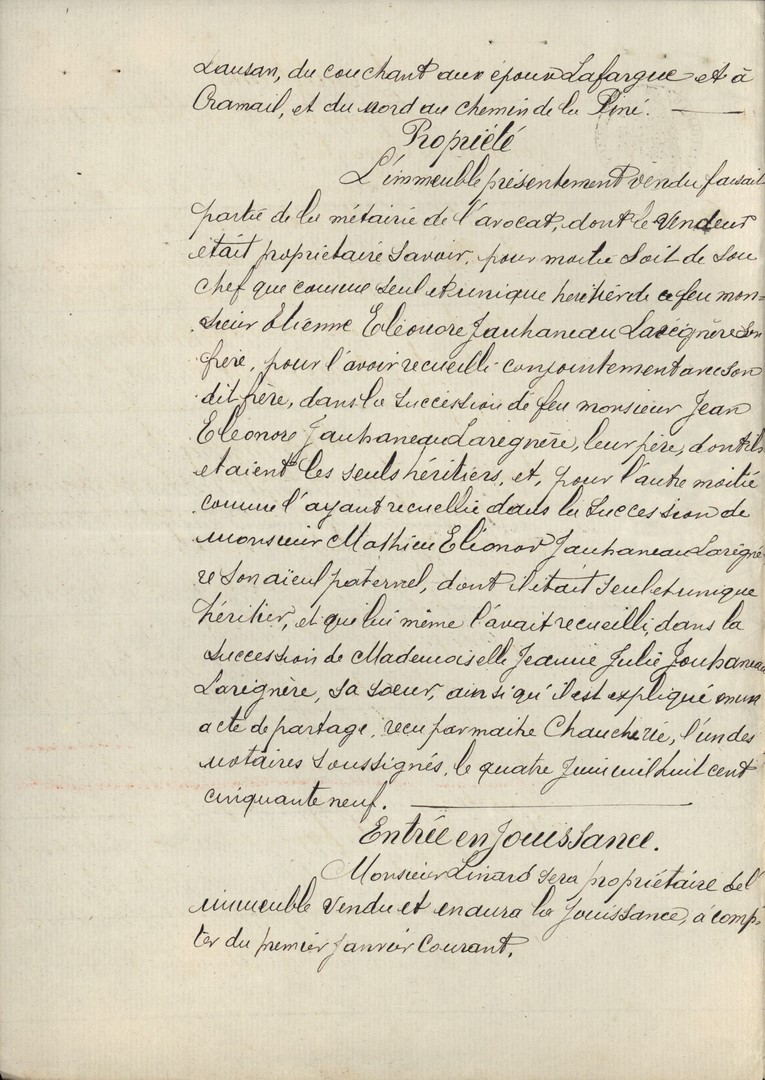 Lausan, du couchant aux époux Lafargue et à
Cramail, et du nord au chemin de la Piné.
Propriété
L'immeuble présentement vendu faisait
partie de la métairie de l'avocat, dont le vendeur
était propriétaire savoir, pour moitié soit de son
chef que comme seul et unique héritier de ce feu mon-
sieur Etienne Eléonore Jauhaneau Lareignère son
frère, pour l'avoir recueilli conjointement avec son
dit frère, dans la succession de feu monsieur Jean
Eléonore Jauhaneau Lareignère, leur père, dont ils
etaient les seuls héritiers, et, pour l'autre moitié
comme l'ayant recueillie dans la succession de
monsieur Mathieu Elionor Jauhaneau Lareignè-
re son aïeul paternel, dont il était seul et unique
héritier, et que lui même l'avait recueilli, dans la
succession de Mademoiselle Jeanne Julie Jouhaneau
Lareignère, sa soeur, ainsi qu'il est expliqué en un
acte de partage, reçu par maitre Chaucherie, l'un des
notaires soussignés, le quatre Juin mil huit cent
cinquante neuf.
Entrée en Jouissance.
Monsieur Linard sera propriétaire de l'
immeuble vendu et en aura la jouissance, à comp-
ter du premier janvier courant.